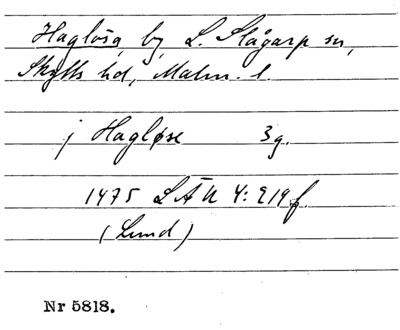 Haglösa, by, L. Slågarp sn,
Skytts hd, Malm. l.
j Hagløse 3g.
1475 LÄU 4: 219 f.
(Lund)
Nr 5818.